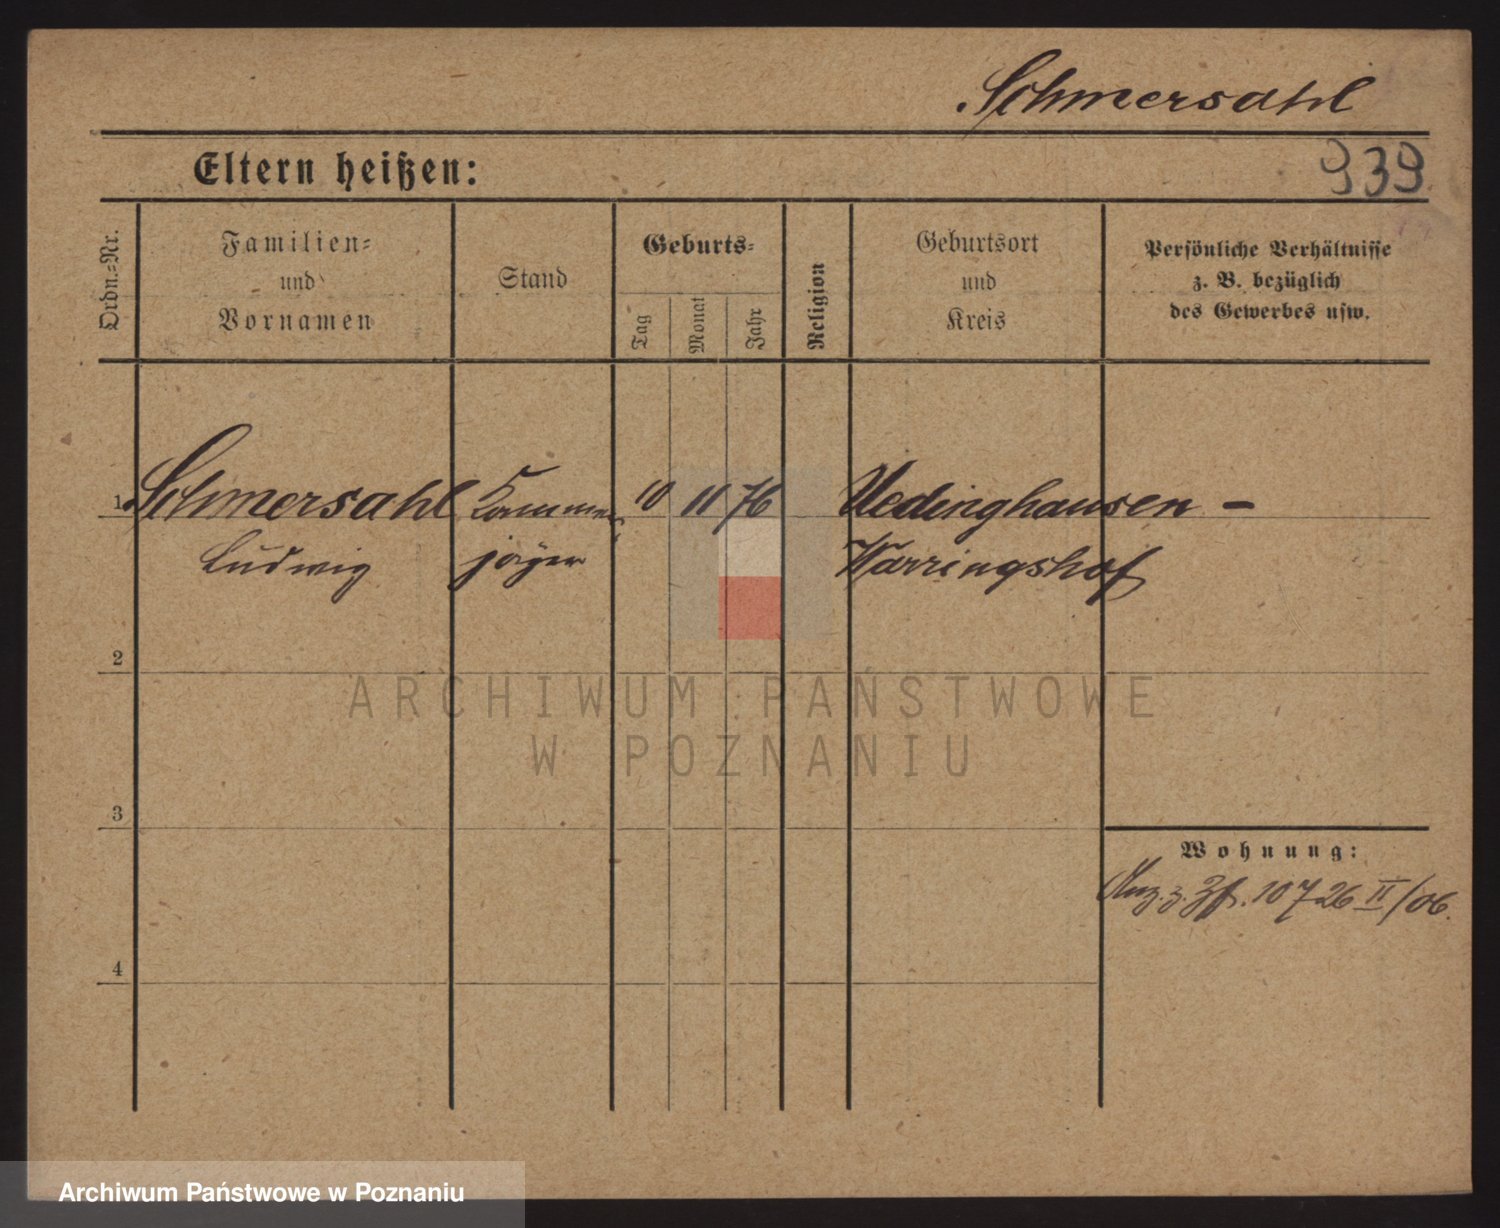 Schmersahl
Eltern heißen:
939
Ordn.=Nr.
Familien=
und
Vornamen
Stand
Geburts=
Tag
Monat
Jahr
Religion
Geburtsort
und
Kreis
Persönliche Verhältnisse
z. B. bezüglich
des Gewerbes usw.
1 Schmersahl Kammer 10 11 76 Uedinghausen –
Ludwig jäger Warringshof
2
3
Wohnung:
10726 II/06.
4
ARCHIWUM PAŃSTWOWE
W POZNANIU
Archiwum Państwowe w Poznaniu